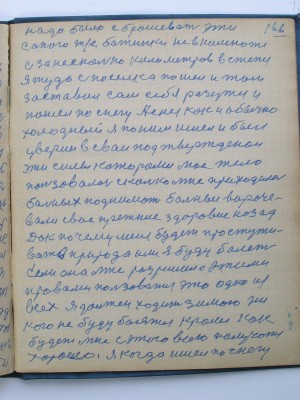 166
надо было сбрасывать эти
самого т/с батинки не вкинети
и занесен на километров в степи
Я туда с поселка пошел и там
заставил сам себя разутся и
пошел по снегу А снег как и обычно
холодный я по ним шел и был
уверен в свои подтвержденой
эти силы которыми мое тело
пользовалос сколко мне приходилос
болных поднимат болные ворочe-
вали свое прежние здоровие назад
Дак почему меня будет простужи-
ват природа или я буду болет
если она мне разришила этими
правами ползоватся это одно из
всех Я должен ходит зимою ни
кого не буду боятся кроме как
будет мне с этого всего получатся
хорошо. Я когда шел по снегу